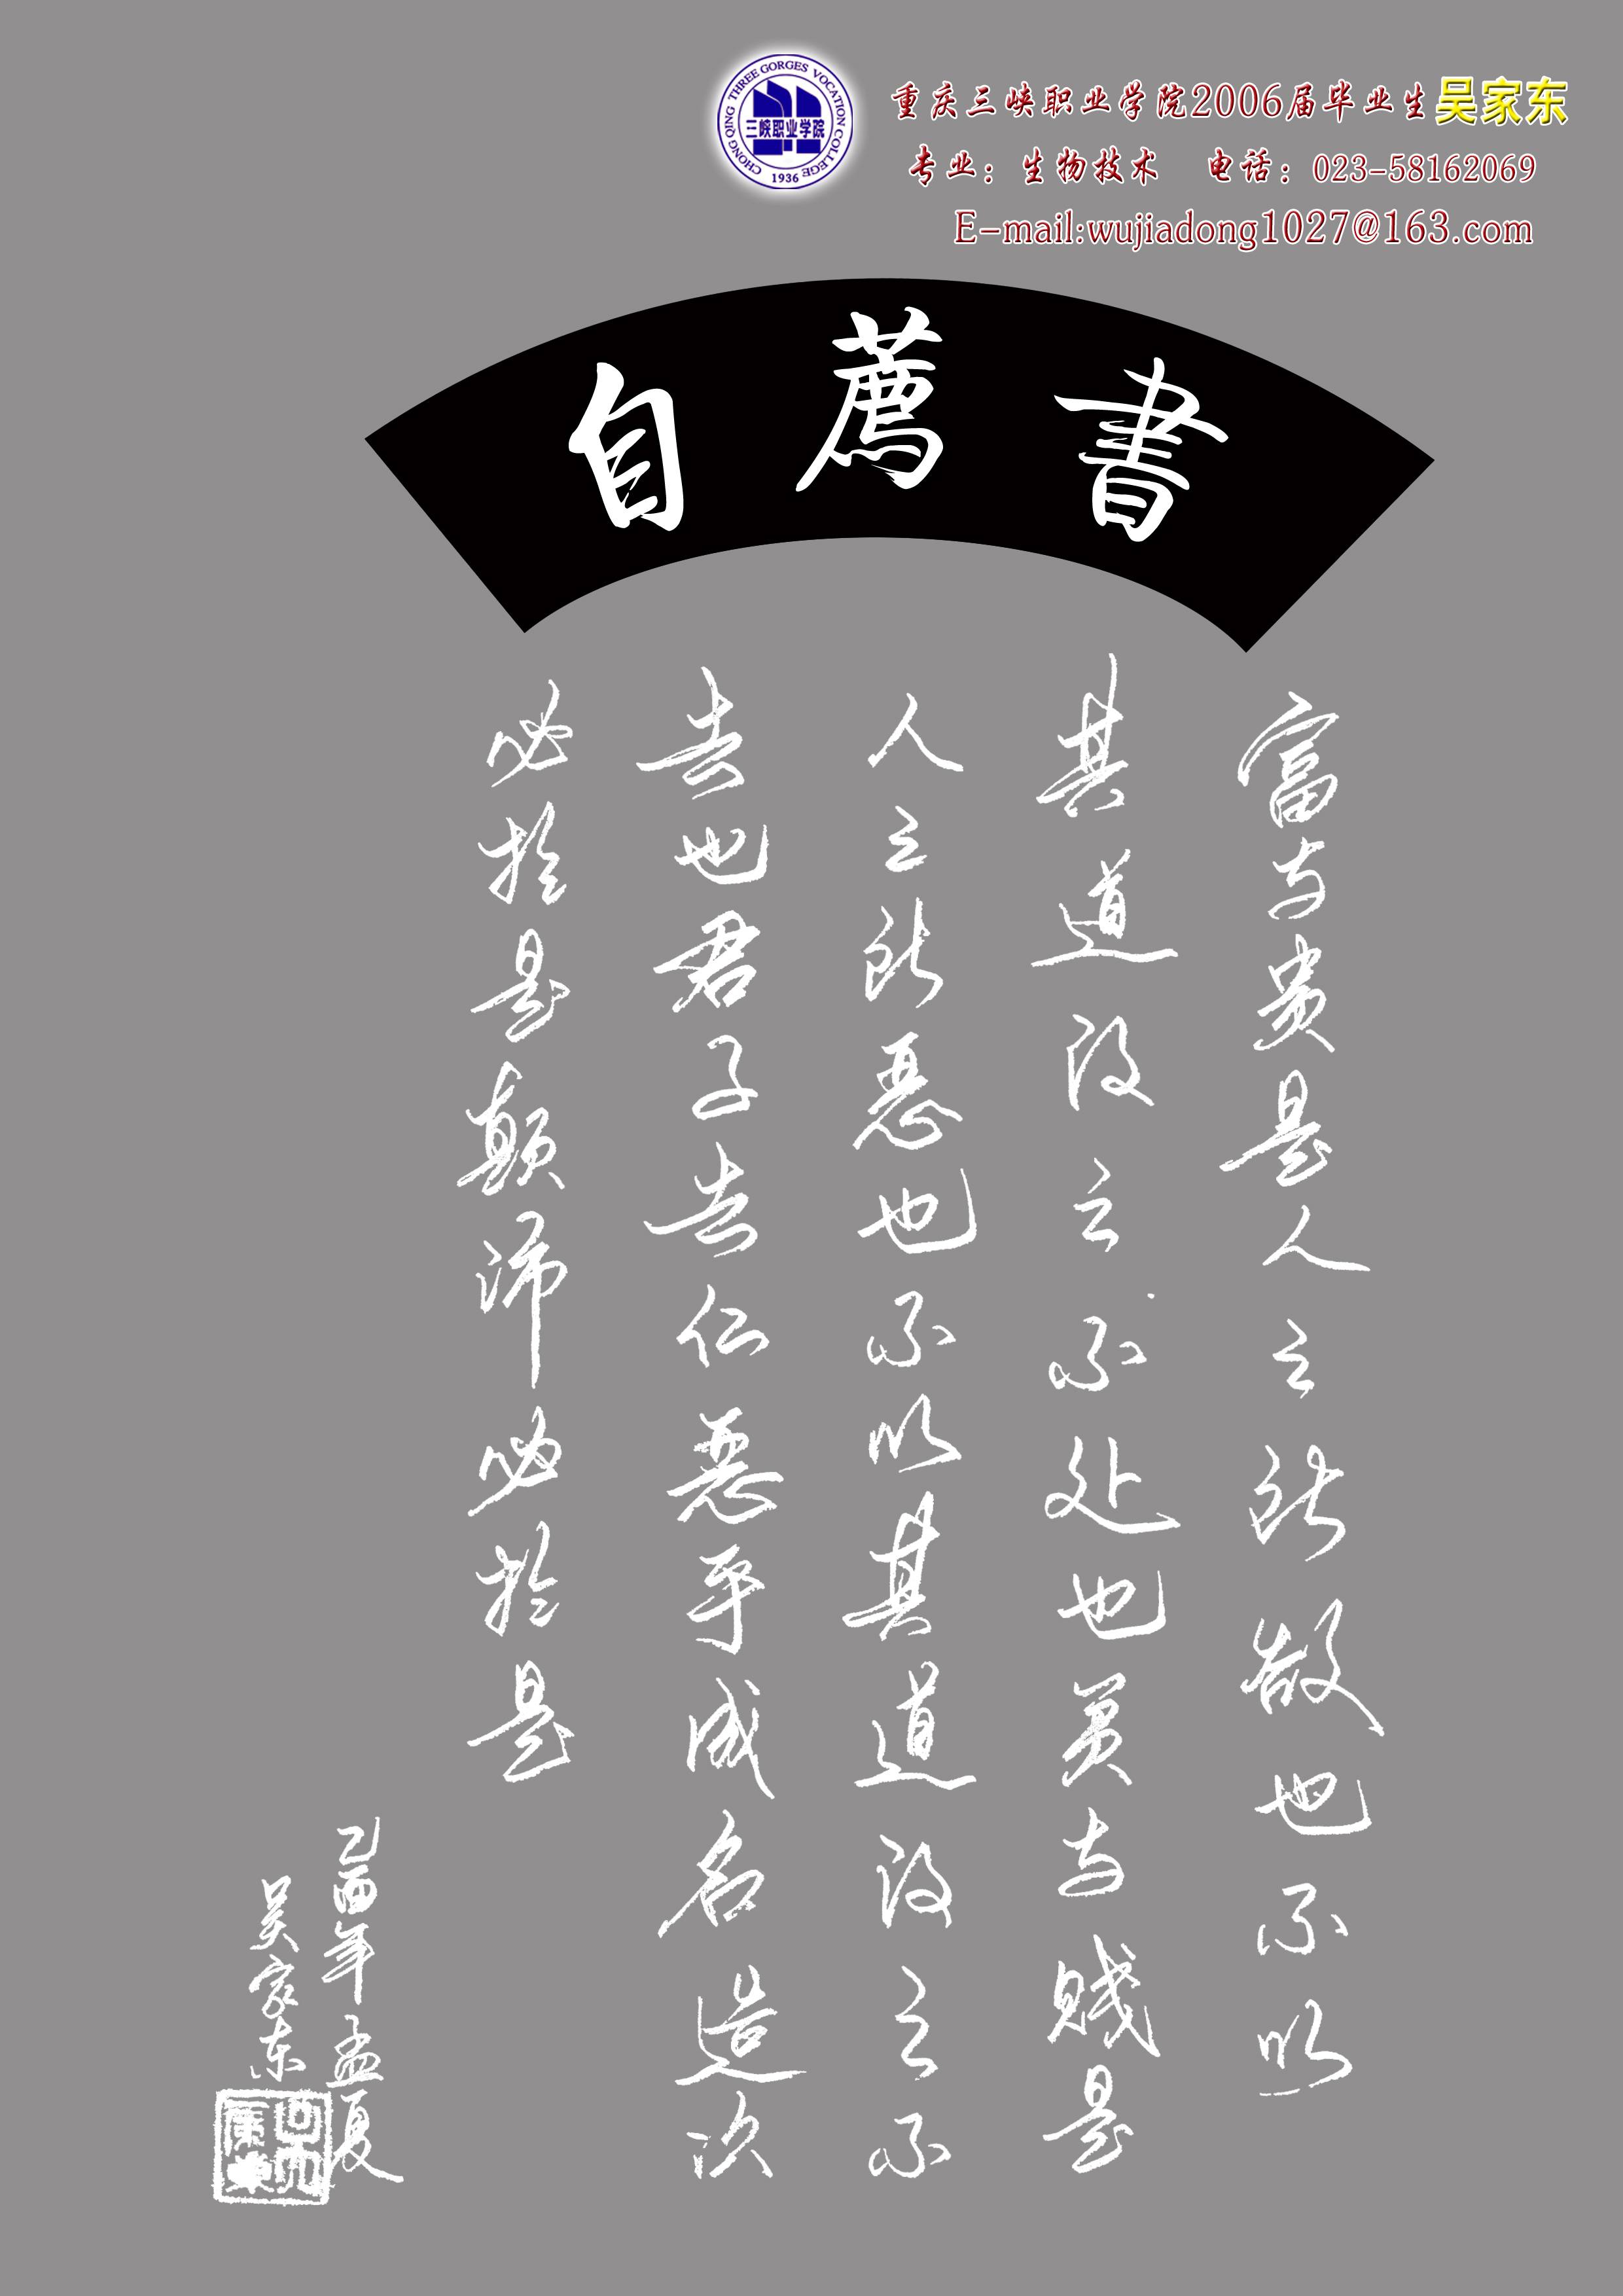 CHONG QING THREE GORGES VOCATION COLLEGE
三峡职业学院
1936
重庆三峡职业学院2006届毕业生吴家东
专业：生物技术 电话：023-58162069
E-mail:wujiadong1027@163.com
自薦書
富与贵是人之所欲也不以
其道得之不处也贫与贱是
人之所恶也不以其道得之不
去也君子去仁恶乎成名造次
必於是颠沛必於是
乙酉年孟夏
吴家东